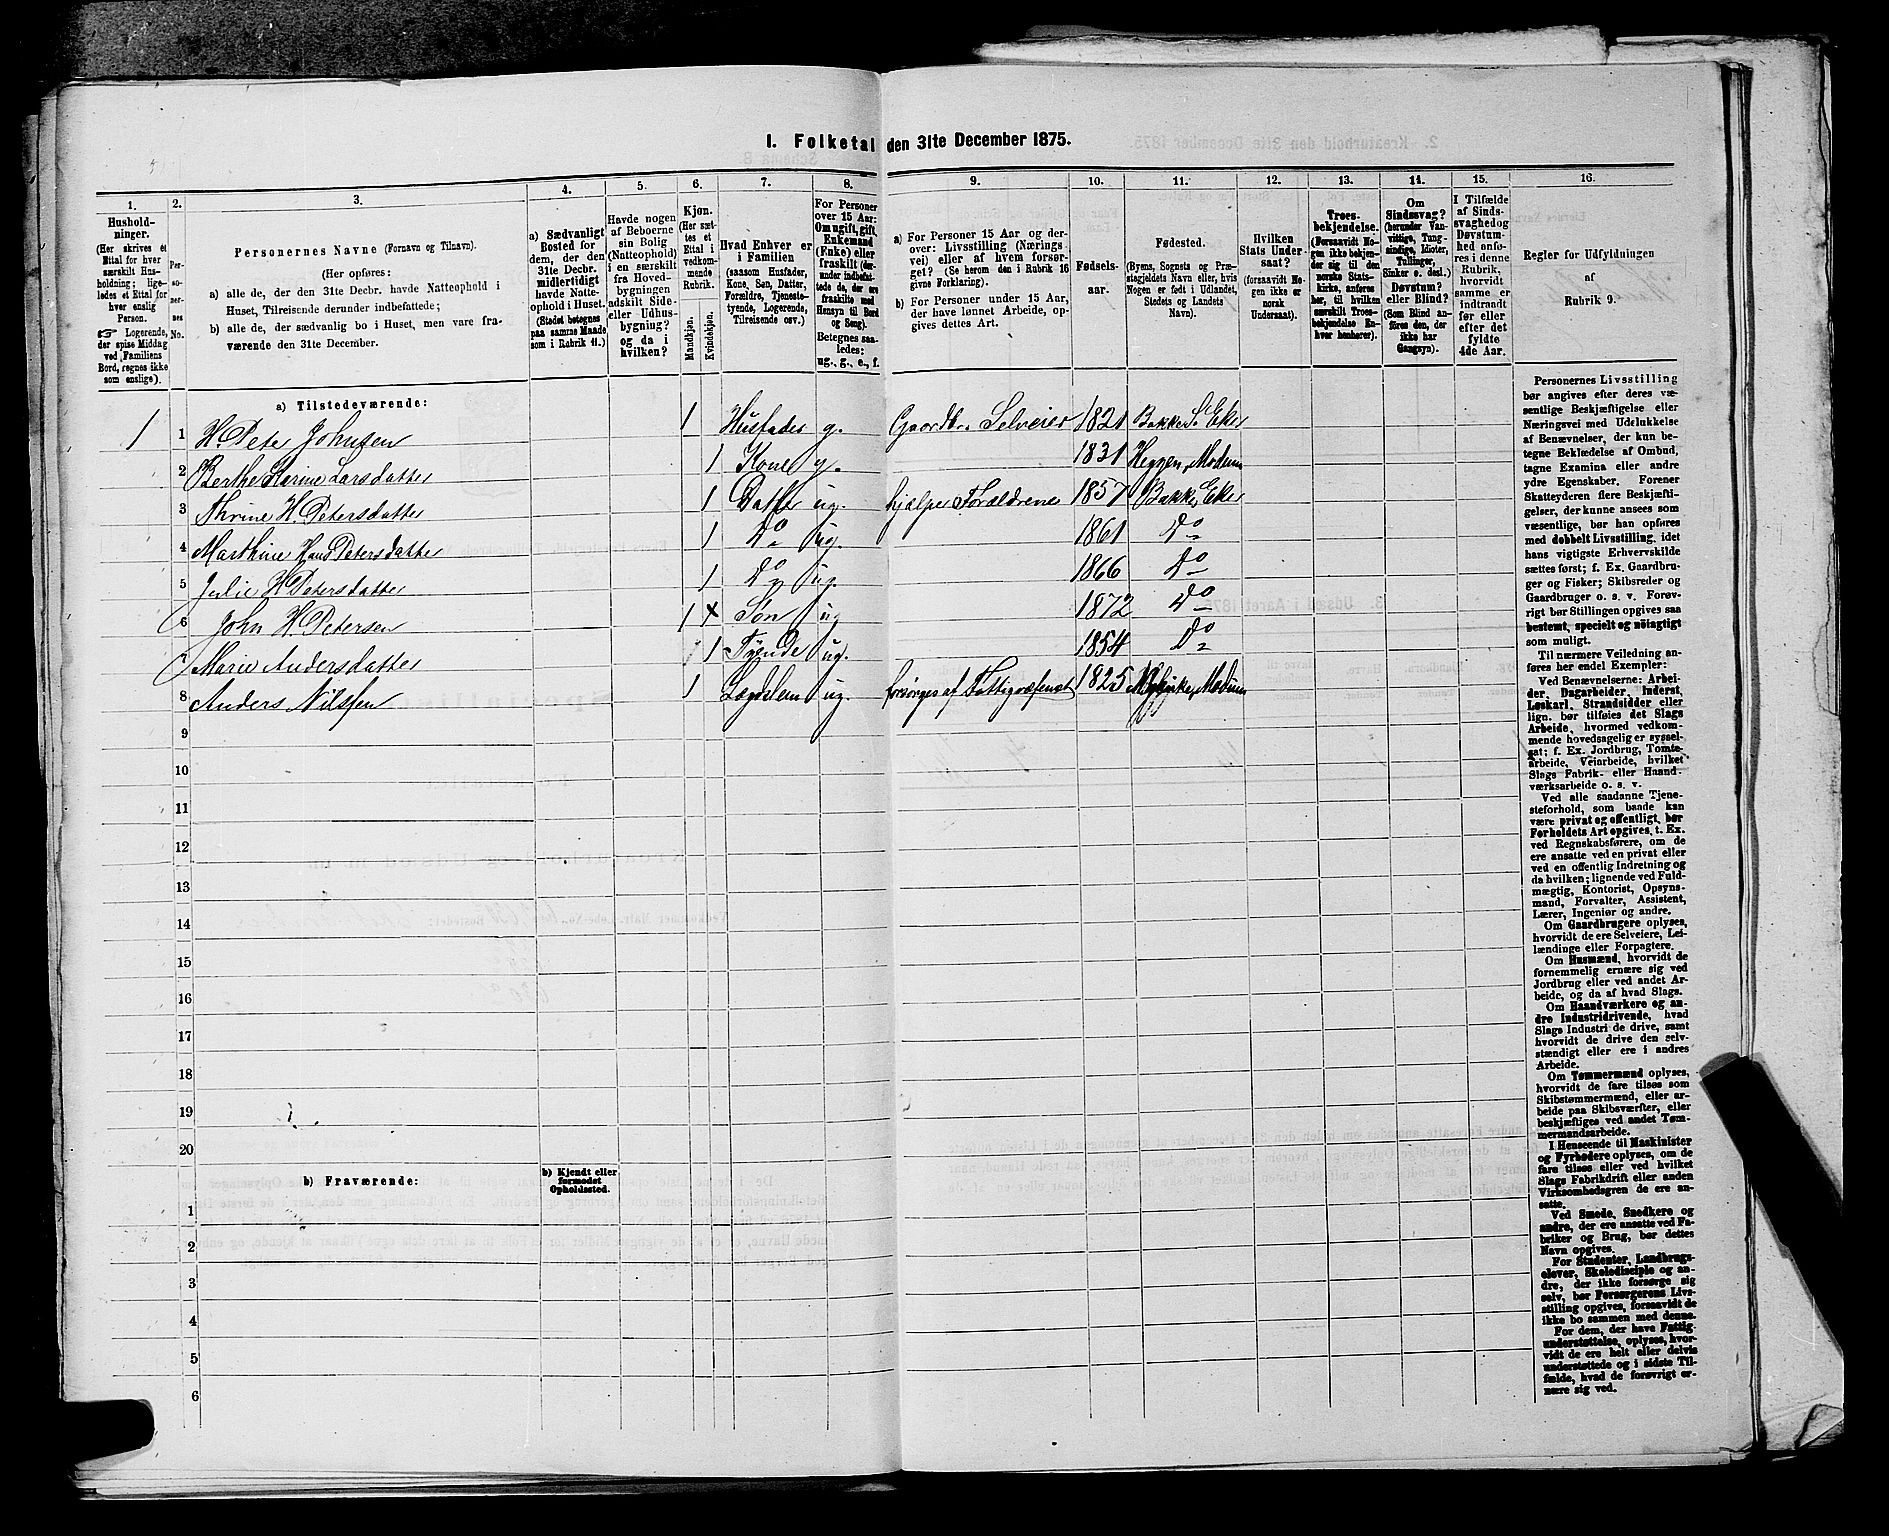 I. Folketal den 31te December 1875.
1. 2. 3. 4. 5. 6. 7. 8. 9. 10. 11. 12. 13. 14. 15. 16.
Hushold-
ninger.
(Her skrives et
Ettal for hver
særskilt Hus-
holdning; lige-
ledes et Ettal for
hver enslig
Person.
☞ Logerende,
der spise Middag
ved Familiens
Bord, regnes ikke
som enslige).
Per-
so-
ner-
nes
No.
Personernes Navne (Fornavn og Tilnavn).
(Her opføres:
a) alle de, der den 31te Decbr. havde Natteophold i
Huset, Tilreisende derunder indbefattede;
b) alle de, der sædvanlig bo i Huset, men vare fra-
værende den 31te December.
a) Sædvanligt
Bosted for
dem, der den
31te Decbr.
midlertidigt
havde Natte-
ophold i Huset.
(Stedet betegnes
paa samme Maade
som i Rubrik 11.)
Havde nogen
af Beboerne
sin Bolig
(Natteophold)
i en særskilt
fra Hoved-
bygningen
adskilt Side-
eller Udhus-
bygning?
og da i
hvilken?
Kjøn.
(Her sæt-
tes et
Ettal i
vedkom-
mende
Rubrik.
Mandkjøn.
Kvindekjøn.
Hvad Enhver er
i Familien
(saasom Husfader,
Kone, Søn, Datter,
Forældre, Tjeneste-
tyende, Logerende,
Tilreisende osv.)
For Personer
over 15 Aar:
Om ugift, gift,
Enkemand
(Enke) eller
fraskilt (der-
under indbefat-
tede de, der ere
fraskilte med
Hensyn til Bord
og Seng).
Betegnes saa-
ledes:
ug., g., e., f.
a) For Personer 15 Aar og der-
over: Livsstilling (Nærings-
vei) eller af hvem forsør-
get? (Se herom den i Rubrik 16
givne Forklaring).
b) For Personer under 15 Aar,
der have lønnet Arbeide, op-
gives dettes Art.
Fødsels-
aar.
Fødested.
(Byens, Sognets og Præ-
stegjeldets Navn eller, hvis
Nogen er født i Udlandet,
Stedets og Landets
Navn).
Hvilken
Stats Under-
saat?
(forsaavidt No-
gen ikke er
norsk
Undersaat).
Troes-
bekjendelse.
(Forsaavidt No-
gen ikke bekjen-
der sig til den
norske Stats-
kirke, anføres
her, til hvilken
særskilt Troes-
bekjendelse En-
hver henhører).
Om
Sindssvag?
(herunder Van-
vittige, Tung-
sindige, Idioter,
Tullinger,
Sinker o. desl.)
Døvstum?
eller Blind?
(Som Blind an-
føres den, der
ikke har
Gangsyn).
I Tilfælde
af Sinds-
svaghed og
Døvstum-
hed onfø-
res i denne
Rubrik,
hvorvidt
samme er
indtraadt
før eller
efter det
fyldte
4de Aar.
Regler for Udfyldningen
af
Rubrik 9.
a) Tilstedeværende:
1 1 H. Peter Johnsen 1 Husfader g. Gaardbr. Selveier 1821 Bakke S. Eker
2 Berthe Karine Larsdatter 1 Kone g. 1831 Heggen, Modum
3 Thrine H. Petersdatter 1 Datter ug. hjælper Forældrene 1857 Bakke, Eker
4 Marthine Hans Petersdatter 1 Do ug. 1861 Do
5 Julie H Petersdatter 1 Do ug. 1866 Do
6 John H. Petersen 1 x Søn ug 1872 Do
7 Marie Andersdatter 1 Tyende ug. 1854 Do
8 Anders Nilssen 1 Lægdslem ug. forsørges af Fattigvæsenet 1825 Modum
9
10
11
12
13
14
15
16
17
18
19
20
b) Fraværende:
b) Kjendt eller
formodet
Opholdssted.
1
2
3
4
5
6
Personernes Livsstilling
bør angives efter deres væ-
sentlige Beskjæftigelse eller
Næringsvei med Udelukkelse
af Benævnelser, der kun be-
tegne Beklædelse af Ombud,
tagne Examina eller andre
ydre Egenskaber. Forener
Skatteyderen flere Beskjæfti-
gelser, der kunne ansees som
væsentlige, bør han opføres
med dobbelt Livsstilling, idet
hans vigtigste Erhvervskilde
sættes først; f. Ex. Gaardbru-
ger og Fisker; Skibsreder og
Gaardbruger o. s. v. Forøv-
rigt bør Stillingen opgives saa
bestemt, specielt og nöiagtigt
som muligt.
Til nærmere Veiledning an-
føres her endel Exempler:
Ved Benævnelserne: Arbei-
der, Dagarbeider, Inderst,
Løskarl, Strandsidder eller
lign. bør tilføies det Slags
Arbeide, hvormed vedkom-
mende hovedsagelig er syssel-
sat; f. Ex. Jordbrug, Tomte-
arbeide, Veiarbeide, hvilket
Slags Fabrik- eller Haand-
værksarbeide o. s. v.
Ved alle saadanne Tjene-
steforhold, som baade kan
være privat og offentligt, bør
Forholdets Art opgives, t. Ex.
ved Regnskabsførere, om de
ere ansatte ved en privat eller
ved en offentlig Indretning og
da hvilken; lignende ved Fuld-
mægtig, Kontorist, Opsyns-
mand, Forvalter, Assistent,
Lærer, Ingeniør og andre.
Om Gaardbrugere oplyses,
hvorvidt de ere Selveiere, Lei-
lændinge eller Forpagtere.
Om Husmænd, hvorvidt de
fornemmelig ernære sig ved
Jordbrug eller ved andet Ar-
beide, og da af hvad Slags.
Om Haandværkere og an-
dre Industridrivende, hvad
Slags Industri de drive, samt
hvorvidt de drive den selv-
stændigt eller ere i andres
Arbeide.
Om Tømmermænd oplyses,
hvorvidt de fare tilsøs som
Skibstømmermænd, eller ar-
beide paa Skibsværfter, eller
beskjæftiges ved andet Tøm-
mermandsarbeide.
I Henseende til Maskinister
og Fyrbødere oplyses, om de
fare tilsøs eller ved hvilket
Slags Fabrikdrift eller anden
Virksomhedsgren de ere an-
satte.
Ved Smede, Snedkere og
andre, der ere ansatte ved Fa-
briker og Brug, bør dettes
Navn opgives.
For Studenter, Landbrugs-
elever, Skoledisciple og an-
dre, der ikke forsørge sig
selv, bør Forsørgerens Livs-
stilling opgives, forsaavidt de
ikke bo sammen med denne.
For dem, der have Fattig-
understøttelse, oplyses, hvor-
vidt de ere helt eller delvis
understøttede og i sidste Til-
fælde, hvad de forøvrigt er-
nære sig ved.